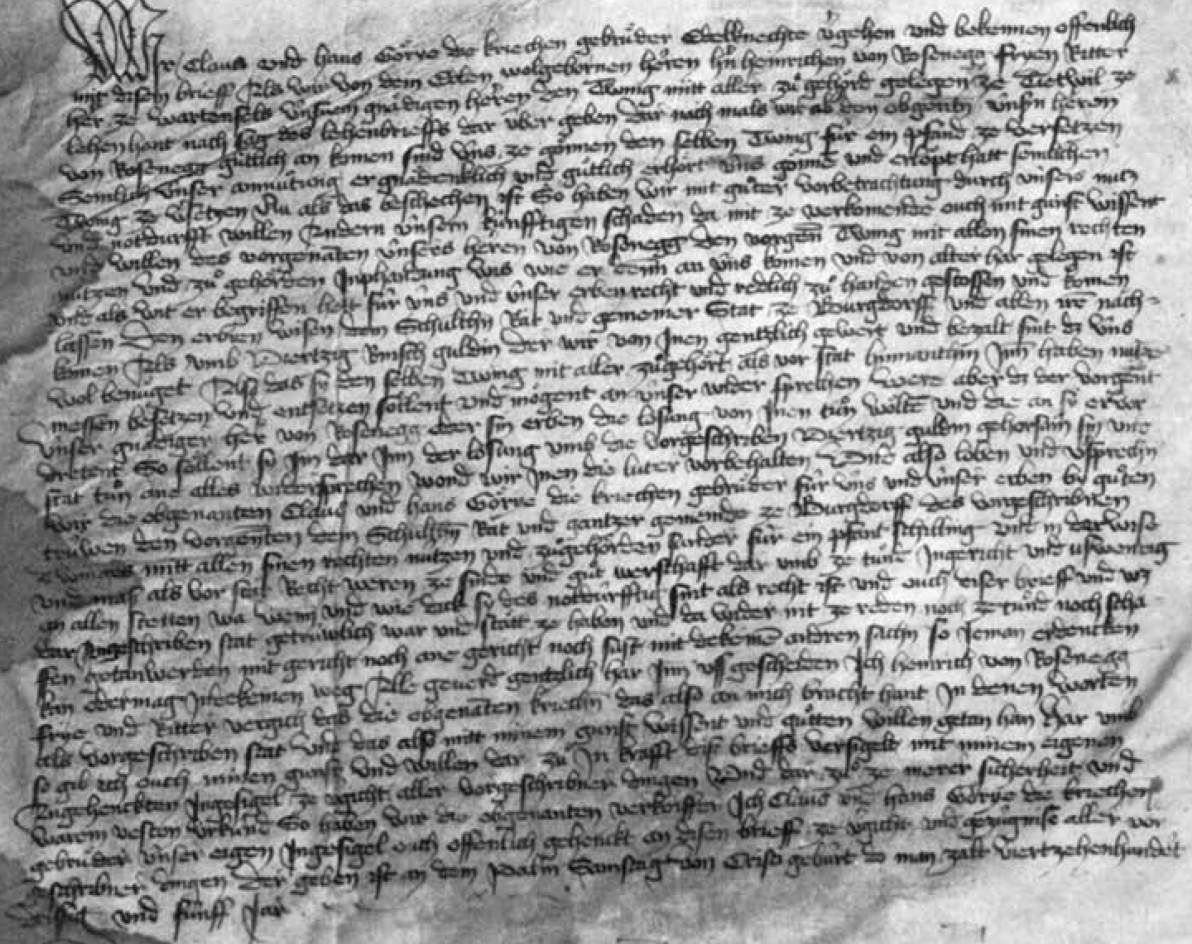 Wir Claus und hans Görye die kriechen gebrüder Edelknechte v̉gehen und bekennen offenlich
mit disem brieff Als wir von dem Edlen wolgebornen herren hn̄ heinrichen von Rosenegg Fryen Ritter
her ze wartenfels v̉nserem gnädigen herren den Twing mitt aller zů gehörd gelegen ze Dietwil ze
lehen hant nach sag des lehenbrieffs dar vber geben dar nach mals wir aber den obgn̄tn̄ v̉nsn̄ heren
von Rosenegg güttlich an komen sind v̉ns ze gönnen den selben Twing für ein pfand ze versetzen
Semlich v̉nser anmůtung er gnädenklich und gütlich erhört v̉ns gönnē und erlopt hatt semlichen
Twing ze v̉setzen Nu als das beschechen ist So haben wir mit gůter vorbetrachtung durch v̉nsers nutz
und notdurfft willen Andern v̉nsern künfftigen schaden da mit ze verkomende ouch mit gunst wissent
und willen des vorgenāten v̉nsers heren von Rosenegg den vorgen̄ Twing mit allen sinen rechten
nützen und zů gehörden Inphandung wis wie er denn an v̉ns komen und von alter har gelegen ist
und als wit er begriffen hett für v̉ns und v̉nser erben recht und redlich zů handen gestossen und komen
lassen den erbren wisen dem Schulthn̄ Rat und gemeiner Stat ze Burgdorff und allen ire nach-
komen Als umb Viertzig Rinsch guldin der wir von Inen gentzlich gewert und bezalt sint dz v̉ns
wol benüget Also das sy den selben Twing mit aller zůgehört als vor stat Innhaben nutze
niessen besetzen und entsetzen söllent und mögent an v̉nser wider sprechen were aber dz der vorgent
v̉nser gnädiger her von Rosenegg oder sin erben die losung von Inen tůn wöltē und die an sy ervor
dretent So söllent sy Im dar Inn der losung umb die vorgeschriben Viertzig guldin gehorsam sin und
stat tůn ane alles widersprechen wond wir Inen die luter vorbehalten Und also loben und v̉sprechn̄
wir die obgenanten Claus und hans Görye die kriechen gebrüder für v̉ns und v̉nser erben by gůten
trüwen den vorgenten dem Schulthn̄ Rat und gantzer gemeinde ze Burgdorff des vorgeschribnen
Twinges mitt allen sinen rechten nützen und zůgehörden für ein pfant schilling und in der wise
und mas als vor stat Recht weren ze sinde und gůt werschafft dar umb ze tůnd Ingericht und uswendig
an allen stetten wa wenn und wie dick sy des notdürfftig sint als recht ist und ouch diser brieff und wz
dar Angeschriben stat getrüwlich war und stätt ze haben und da wider nit ze reden noch ze tůnd noch scha
ffen getan werden mit gericht noch ane gericht noch sust mit dekeinē andren sachn̄ so Jeman erdencken
kan oder mag In dekeinen weg Alle geverd gentzlich har Inn us gescheiden Ich heinrich von Rosenegg
frye und Ritter vergich das die obgenāten kriechn̄ das also an mich bracht hant In denen worten
als vorgeschriben stat und das also mitt minem gunst wissent und gůtten willen getan han Har umb
so gib ich ouch minen gunst und willen dar zů In krafft diss brieffs versigelt mit minem eigenen
Angehenckten Ingesigel ze v̉gicht aller vorgeschribner dingen Und dar zů ze merer sicherheit und
warem vesten urkünd So haben wir die obgenanten verköiffer Ich Claus und hans Görye die kriechen
gebrüder v̉nser eigen Ingesigel ouch offenlich gehenckt an disen brieff ze v̉gicht und gezügnise aller vor
geschribner dingen Der geben ist an dem palm Samstag von Cristi gebürt do man zalt viertzehenhundert
drissig und fünff Jar